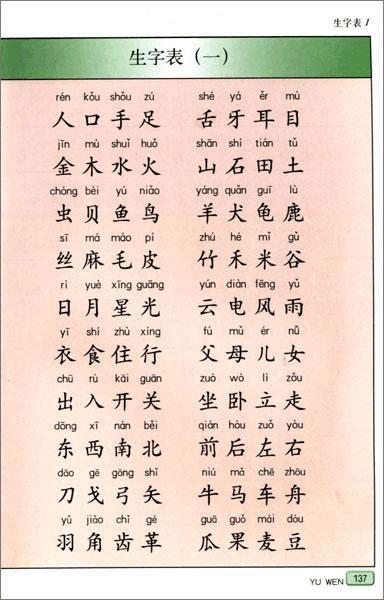 生字表 1
生字表（一）
rén kǒu shǒu zú shé yá ěr mù
人口手足 舌牙耳目
jīn mù shuǐ huǒ shān shí tián tǔ
金木水火 山石田土
chóng bèi yú niǎo yáng quǎn guī lù
虫贝鱼鸟 羊犬龟鹿
sī má máo pí zhú hé mǐ gǔ
丝麻毛皮 竹禾米谷
rì yuè xīng guāng yún diàn fēng yǔ
日月星光 云电风雨
yī shí zhù xíng fù mǔ ér nǚ
衣食住行 父母儿女
chū rù kāi guān zuò wò lì zǒu
出入开关 坐卧立走
dōng xī nán běi qián hòu zuǒ yòu
东西南北 前后左右
dāo gē gōng shǐ niú mǎ chē zhōu
刀戈弓矢 牛马车舟
yǔ jiǎo chǐ gé guā guǒ mài dòu
羽角齿革 瓜果麦豆
YU WEN 137